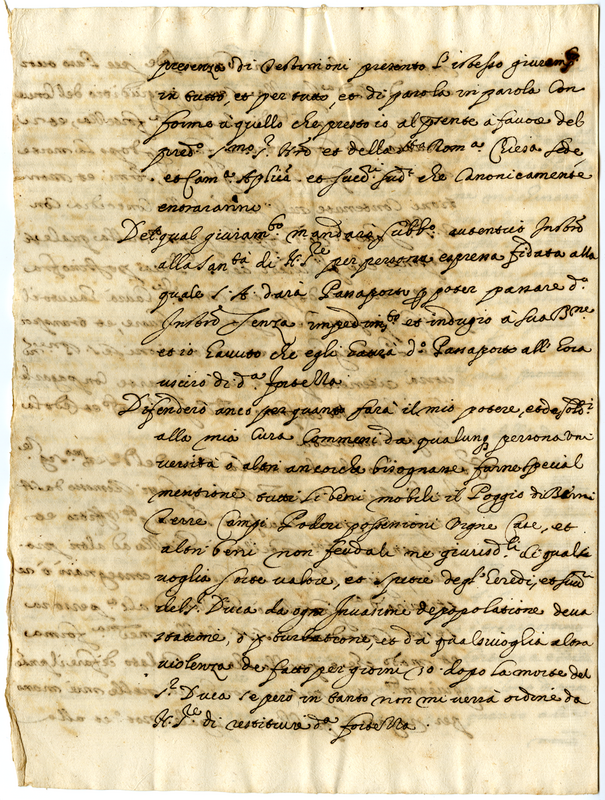 presenza di Testimoni presento l'istesso giuramto
in tutto, et per tutto, et di parola in parola con
forme à quello che presto io al pnte à favore del
pred.o S.mo S.r Nro et della Sta Rom.a Chiesa Sede
et Cam.a Aplica et succ.ri sud.i che Canonicamente
entraranno
Del qual giuram.to mandarà subb.o autentico Instro
alla San.tà di N. S.re per persona espressa fidata alla
quale S. A. darà Passaporto p poter passare d.o
Instro senza impedim.to et indugio à Sua B.ne
et io havuto che egli haurà d.o Passaporto all' hora
uscirò di d.a fortezza
Difenderò anco per quanto sarà il mio potere, et de sol.ti
alla mia cura commessi da qualunq persona uni
versità ò altri ancorche bisognasse farne special
mentione tutti li beni mobili il Poggio di Berni
terre Campi Poderi possessioni Vigne Case, et
altri beni non feudali ne giurisd.li di qualsi
voglia sorte valore, et specie degl' heredi, et succ.ri
del S.r Duca da ogni Invasione depopolatione deva
statione, ò perturbatione, et da qualsivoglia altra
violenza de fatto per giorni 30 dopo la morte del
S.r Duca se però in tanto non mi verrà ordine da
N. S.re di restituire d.a fortezza